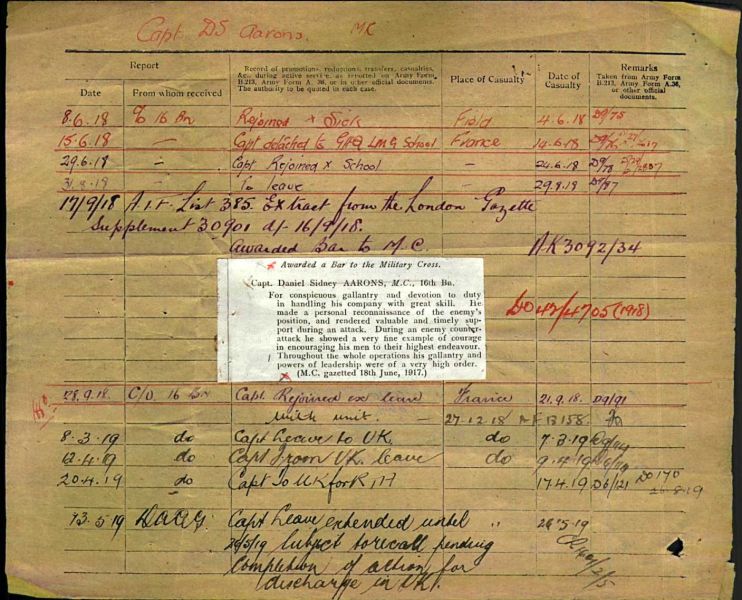 Capt DS Aarons. MC
Report
Record of promotions, reductions, transfers, casualties, &c., during active service, as reported on Army Form B.213, Army Form A.36, or in other official documents. The authority to be quoted in each case.
Place of Casualty
Date of Casualty
Remarks
Taken from Army Form B.213, Army Form A.36, or other official documents.
Date
From whom received
8.6.18 16 Bn Rejoined x Sick Field 4.6.18 D9/75
15.6.18 — Capt detached to GHQ LMG School France 14.6.18
29.6.18 — Capt Rejoined x School — 24.6.18 D9/78
31.8.18 — To leave — 29.8.18 D9/87
17/9/18 A.I.F. List 385. Extract from the London Gazette
Supplement 30901 d/- 16/9/18.
Awarded Bar to M.C. AK3092/34
Awarded a Bar to the Military Cross.
Capt. Daniel Sidney AARONS, M.C., 16th Bn.
For conspicuous gallantry and devotion to duty
in handling his company with great skill. He
made a personal reconnaissance of the enemy's
position, and rendered valuable and timely sup-
port during an attack. During an enemy counter-
attack he showed a very fine example of courage
in encouraging his men to their highest endeavour.
Throughout the whole operations his gallantry and
powers of leadership were of a very high order.
(M.C. gazetted 18th June, 1917.)
DO 42/4705 (1918)
28.9.18. C/O 16 Bn Capt. Rejoined ex leave France 21.9.18. D9/91
with unit. 27-12-18 AFB158.
8.3.19 do Capt Leave to UK. do 7.3.19
12.4.19 do Capt From UK leave do 9.4.19
20.4.19 do Capt To UK for RTA 17.4.19 D6/121 DO 170
13.5.19 DAAG Capt Leave extended until " 26.5.19
26/5/19 Subject to recall pending
Completion of action for
discharge in UK.